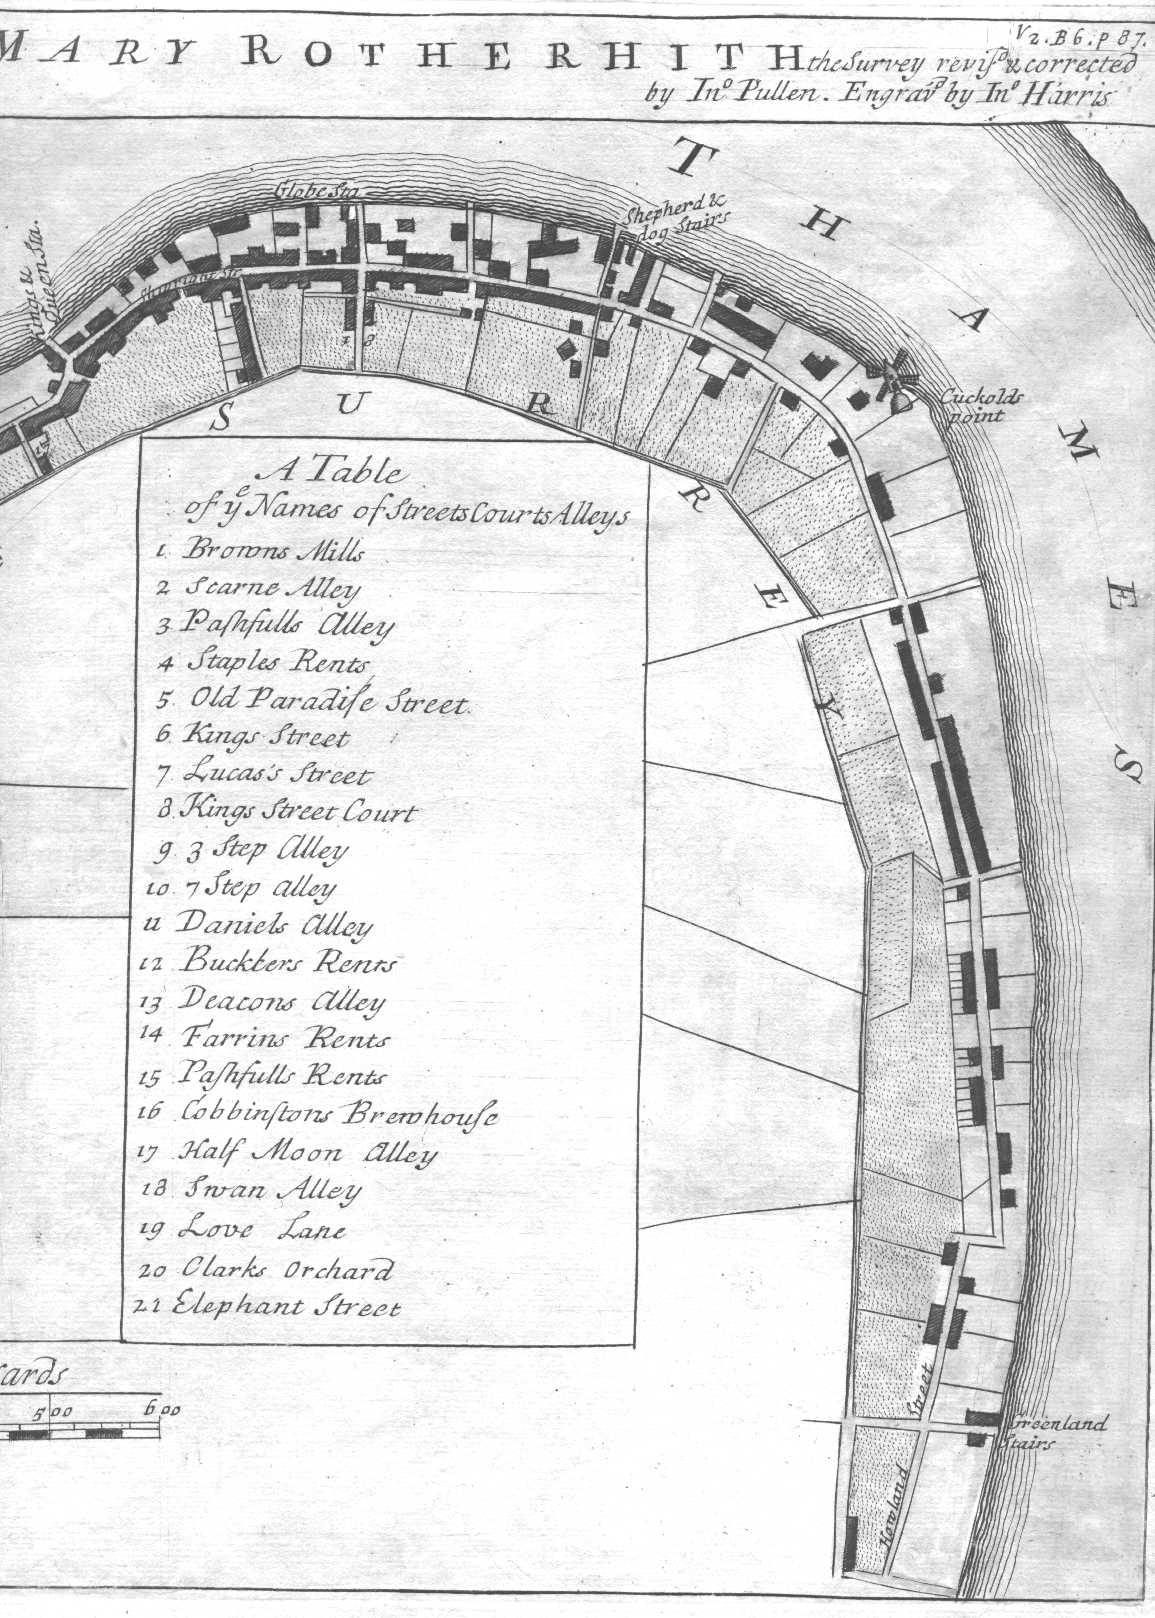 MARY ROTHERHITH the Survey revis.d & corrected
by Jn.o Pullen. Engrav.d by Jn.o Harris
V2. B6. p 87.
THAMES
Globe Sta
Shepherd &
dog Stairs
King &
Queen Sta.
Cuckolds
point
SURREY
A Table
of ye Names of Streets Courts Alleys
1 Browns Mills
2 Scarne Alley
3 Paſhfulls Alley
4 Staples Rents
5 Old Paradiſe Street.
6 Kings Street
7 Lucas's Street
8 Kings Street Court
9 3 Step Alley
10 7 Step alley
11 Daniels Alley
12 Buckters Rents
13 Deacons Alley
14 Farrins Rents
15 Paſhfulls Rents
16 Cobbinſtons Brewhouſe
17 Half Moon Alley
18 Swan Alley
19 Love Lane
20 Clarks Orchard
21 Elephant Street
500 600
Howland Street
Greenland
Stairs